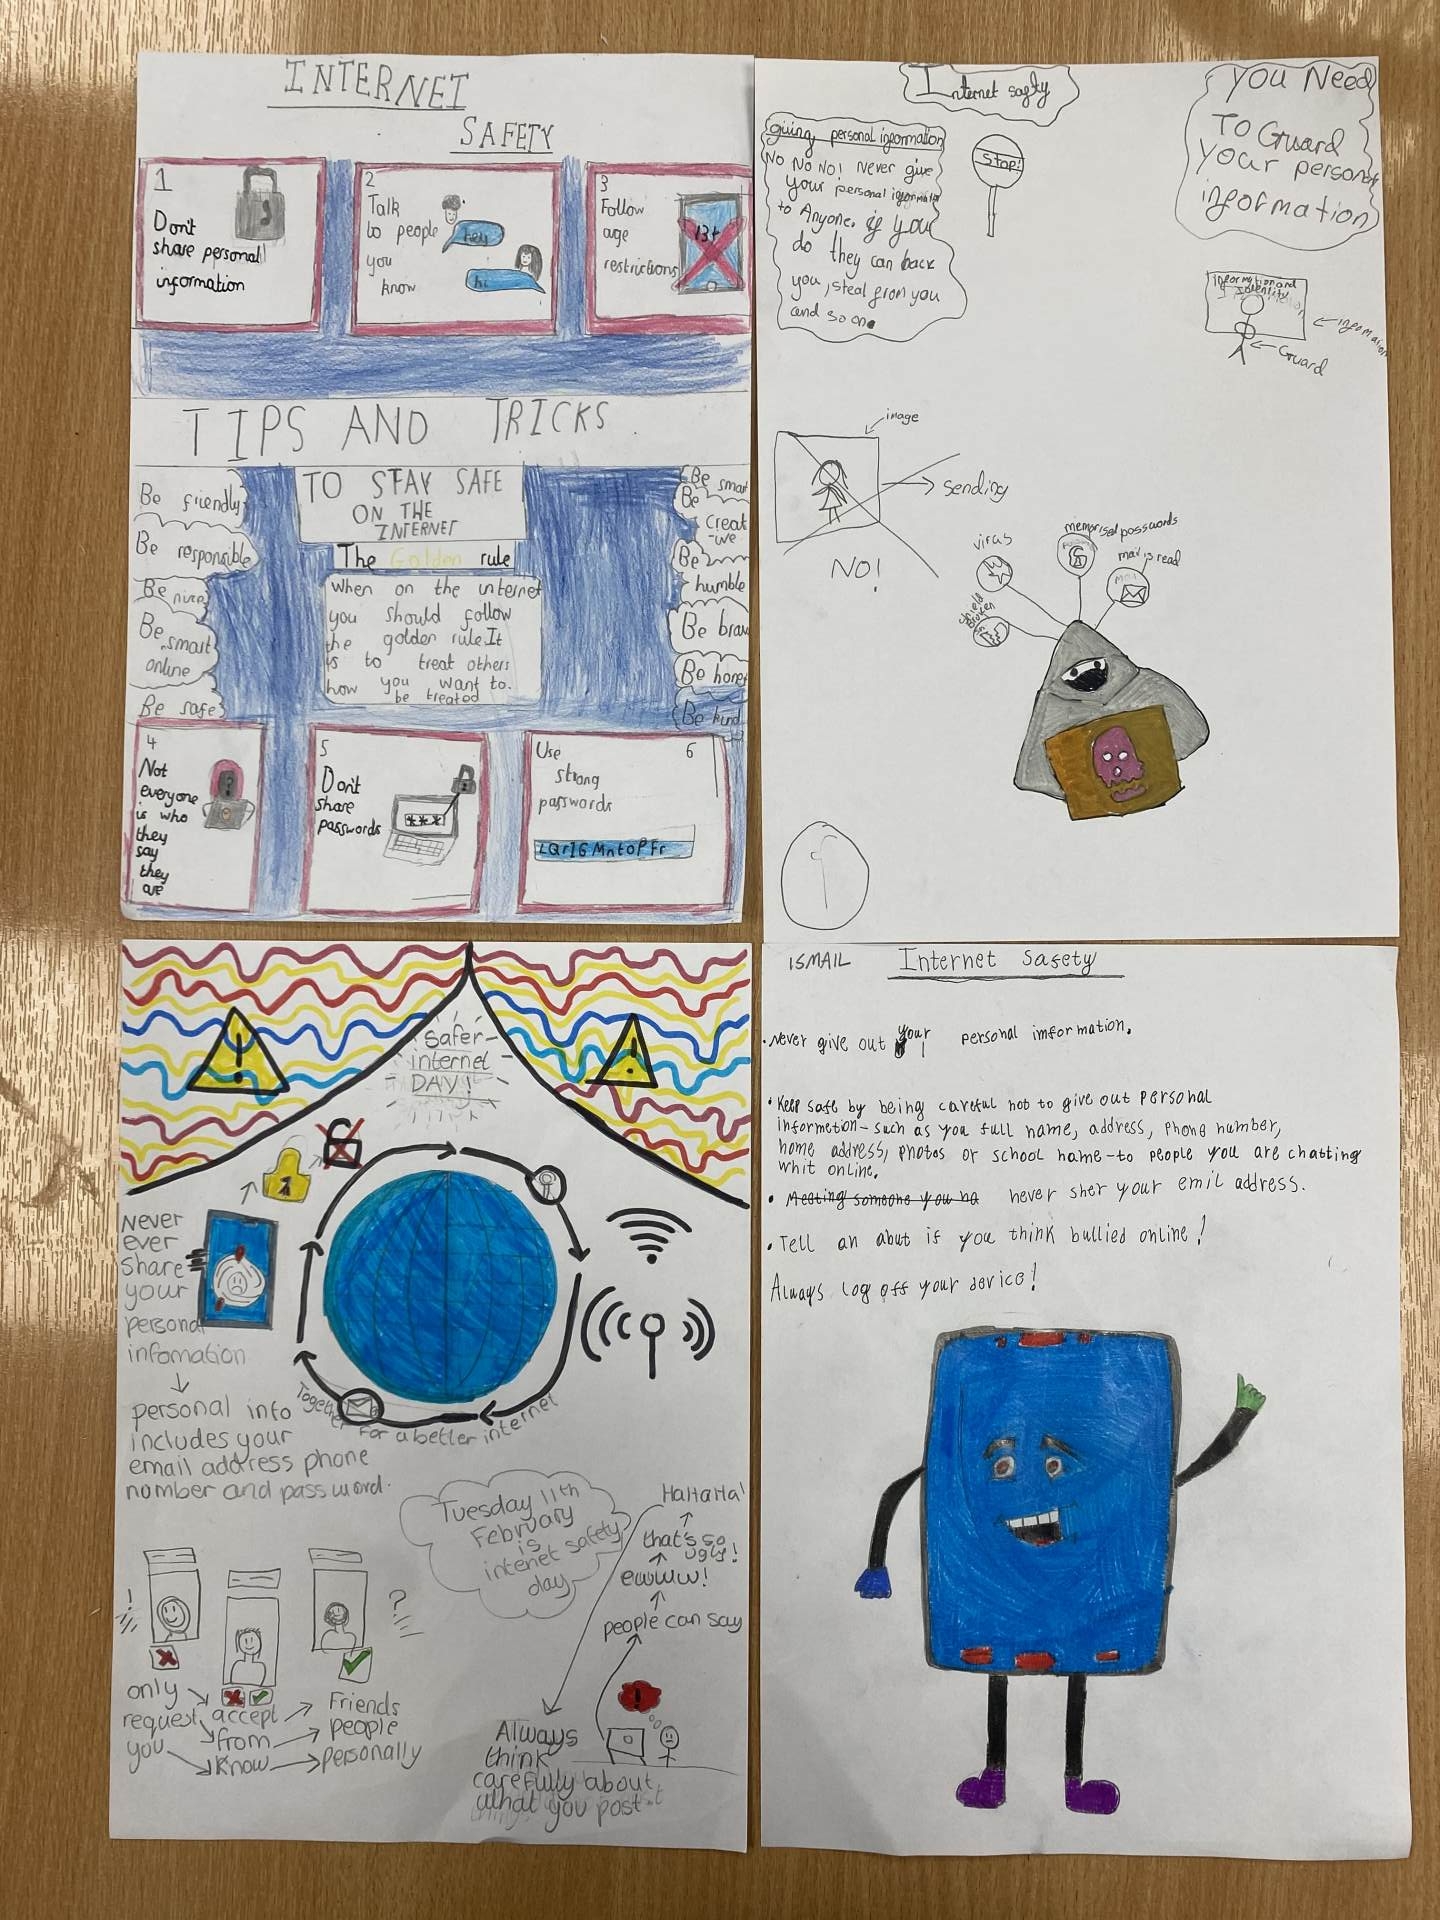 INTERNET
SAFETY
1
Don't
share personal
information
2
Talk
to people
you
know
hey
hi
3
Follow
age
restrictions
13+
TIPS AND TRICKS
Be friendly
Be responsible
Be nice
Be smart
online
Be safe
TO STAY SAFE
ON THE
INTERNET
The Golden rule
When on the internet
you should follow
the golden rule. It
is to treat others
how you want to.
be treated
Be smart
Be
creat
-ive
Be
humble
Be brav
Be hones
Be kind
4
Not
everyone
is who
they
say
they
are
?
5
Don't
share
passwords
***
Use 6
strong
passwords
LQrIGMntoPFr
Internet safty
giving personal information
No No No! Never give
your personal informatio
to Anyone. if you
do they can hack
you, steal from you
and so on.
Stop!
YOU Need
To Guard
your person
information
information and
identity
information
Guard
image
sending
NO!
virus
memorised passwords
mail is read
shield
broken
MAIL
f
safer
internet
DAY!
Never
ever
share
your
personal
infomation
personal info
includes your
email address phone
number and password.
Together for a better internet
Tuesday 11th
February
is
internet safety
day
HaHaHa!
that's so
ugly!
ewww!
people can say
!
?
only
request
you
accept
from
know
Friends
people
personally
Always
think
carefully about
what you post
ISMAIL Internet Safety
• Never give out your personal imformation.
• Keep safe by being careful not to give out personal
information - such as you full name, address, phone number,
home address, photos or school name - to people you are chatting
whit online.
• Meeting someone you ha never sher your emil address.
• Tell an abut if you think bullied online!
Always log off your device!